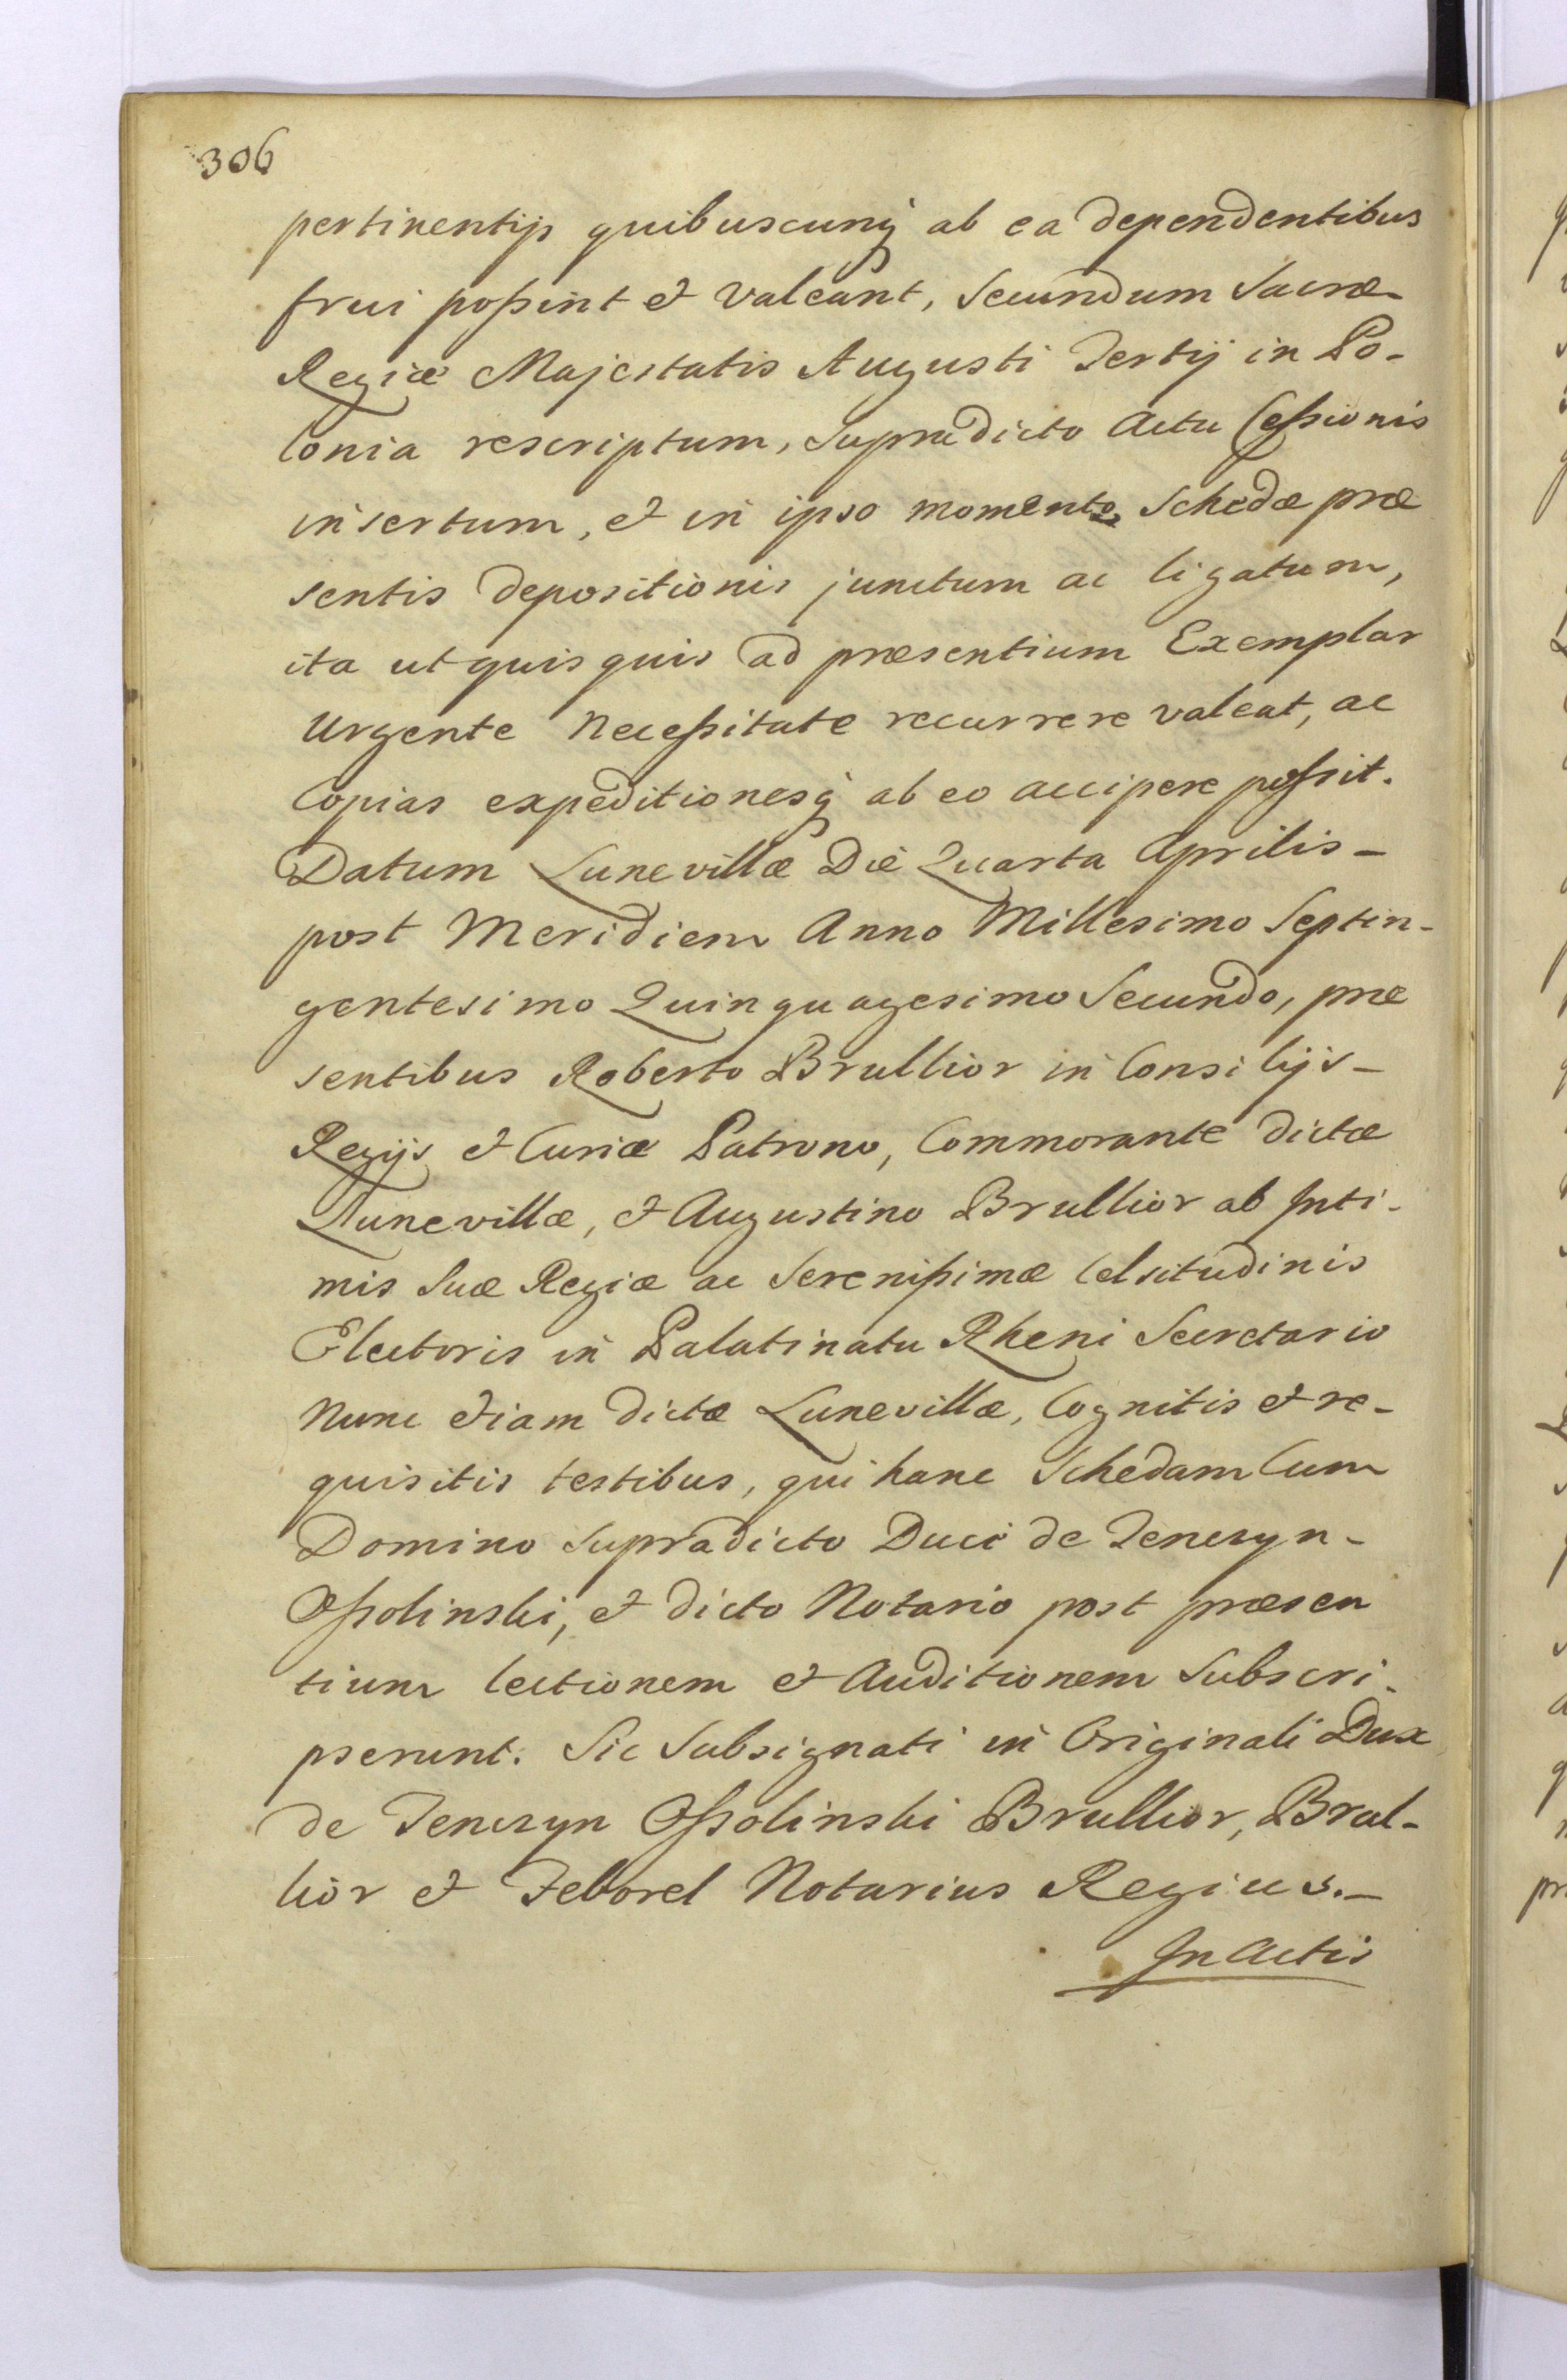 306
pertinentijs quibuscunq́ ab ea dependentibus
frui poßint et valeant, Secundum Sacræ
Regiæ Majestatis Augusti Tertij in Po-
lonia rescriptum, Supradicto Actu Ceßionis
insertum, et in ipso momento Schedæ præ
sentis depositionis junctum ac ligatum,
ita ut quisquis ad præsentium Exemplar
Urgente Neceßitate recurrere valeat, ac
Copias expeditionesq́ ab eo accipere poßit.
Datum Lunevillæ Die Quarta Aprilis -
post Meridiem Anno Millesimo Septin-
gentesimo Quinquagesimo Secundo, præ
sentibus Roberto Brullior in Consilijs -
Regijs et Curiæ Patrono, Commorante dictæ
Lunevillæ, et Augustino Brullior ab Inti-
mis Suæ Regiæ ac Serenißimæ Celsitudinis
Electoris in Palatinatu Rheni Secretario
Nunc etiam dictæ Lunevillæ, Cognitis et re-
quisitis testibus, qui hanc Schedam Cum
Domino Supradicto Duci de Tenczyn -
Oßolinski, et dicto Notario post præsen
tium lectionem et Auditionem Subscri-
pserunt. Sic Subsignati in Originali Dux
de Tenczyn Oßolinski Brullior, Brul-
lior et Febvrel Notarius Regius. -
In Actis